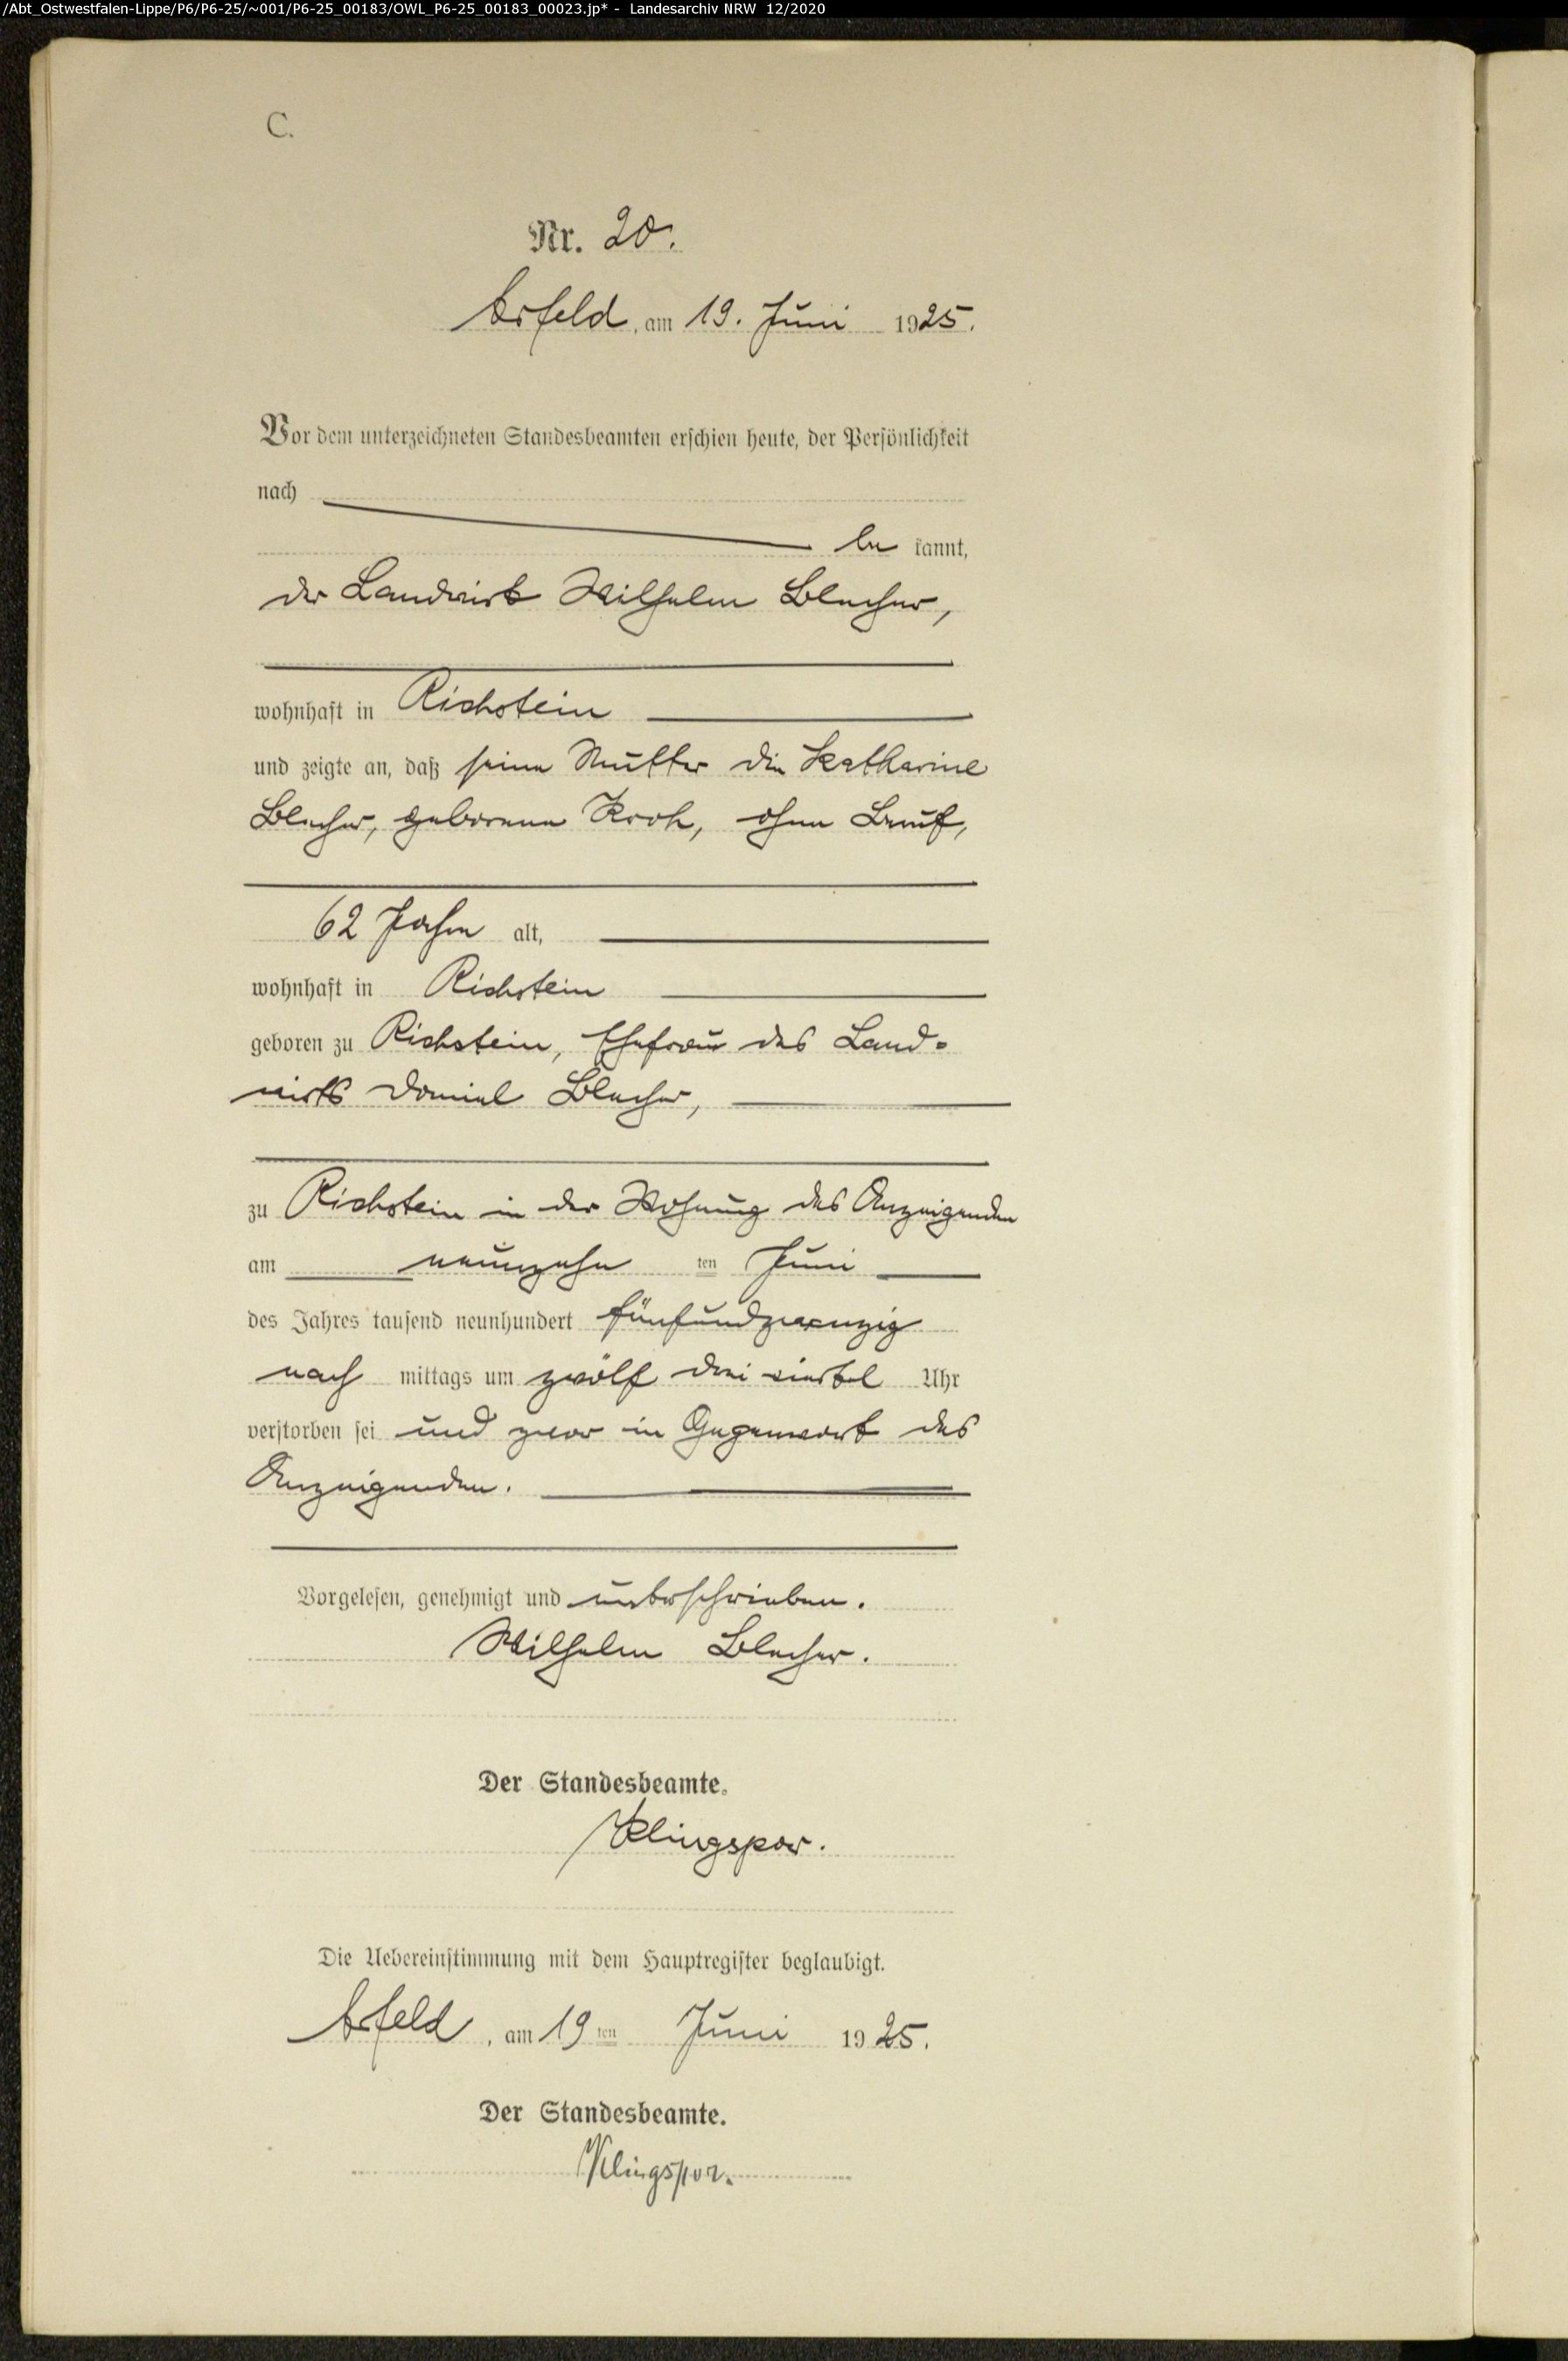 /Abt_Ostwestfalen-Lippe/P6/P6-25/~001/P6-25_00183/OWL_P6-25_00183_00023.jp* - Landesarchiv NRW 12/2020
C.
Nr. 20.
Arfeld, am 19. Juni 1925.
Vor dem unterzeichneten Standesbeamten erschien heute, der Persönlichkeit
nach
be kannt,
der Landwirt Wilhelm Blecher,
wohnhaft in Richstein
und zeigte an, daß seine Mutter die Katharine
Blecher, geborene Kroh, ohne Beruf,
62 Jahre alt,
wohnhaft in Richstein
geboren zu Richstein, Ehefrau des Land-
wirts Daniel Blecher,
zu Richstein in der Wohnung des Anzeigenden
am neunzehn ten Juni
des Jahres tausend neunhundert fünfundzwanzig
nach mittags um zwölf drei viertel Uhr
verstorben sei und zwar in Gegenwart des
Anzeigenden.
Vorgelesen, genehmigt und unterschrieben.
Wilhelm Blecher.
Der Standesbeamte.
Klingspor.
Die Uebereinstimmung mit dem Hauptregister beglaubigt.
Arfeld, am 19 ten Juni 1925.
Der Standesbeamte.
Klingspor.